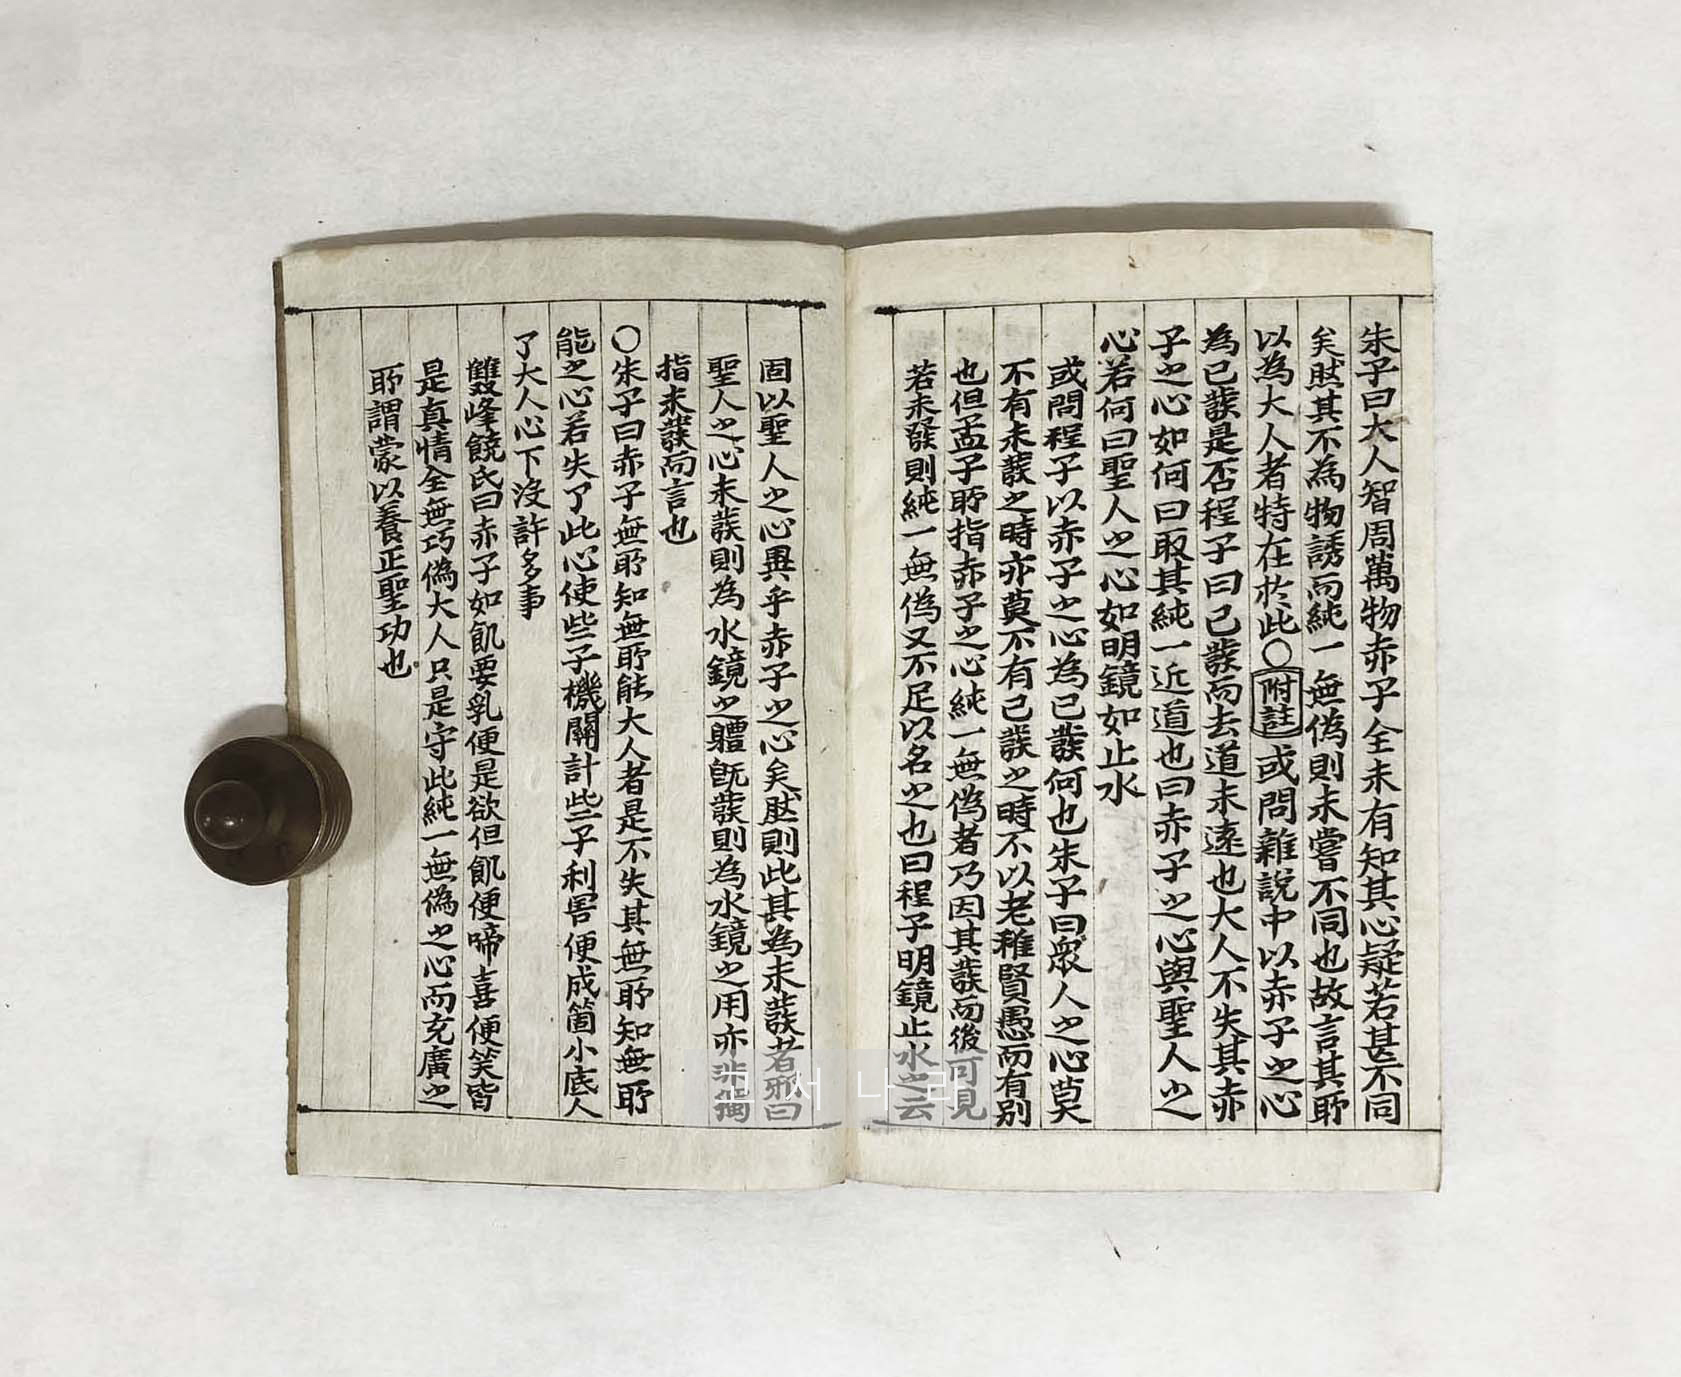 朱子曰大人智周萬物赤子全未有知其心疑若甚不同
矣然其不為物誘而純一無偽則未嘗不同也故言其所
以為大人者特在於此○附註或問雜說中以赤子之心
為已發是否程子曰已發而去道未遠也大人不失其赤
子之心如何曰取其純一近道也曰赤子之心與聖人之
心若何曰聖人之心如明鏡如止水
或問程子以赤子之心為已發何也朱子曰衆人之心莫
不有未發之時亦莫不有已發之時不以老稚賢愚而有別
也但孟子所指赤子之心純一無偽者乃因其發而後可見
若未發則純一無偽又不足以名之也曰程子明鏡止水之云
固以聖人之心異乎赤子之心矣然則此其為未發者邪曰
聖人之心未發則為水鏡之體旣發則為水鏡之用亦非獨
指未發而言也
○朱子曰赤子無所知無所能大人者是不失其無所知無所
能之心若失了此心使些子機關計些子利害便成箇小底人
了大人心下沒許多事
雙峰饒氏曰赤子如飢要乳便是欲但飢便啼喜便笑皆
是真情全無巧偽大人只是守此純一無偽之心而充廣之
所謂蒙以養正聖功也
고서나라